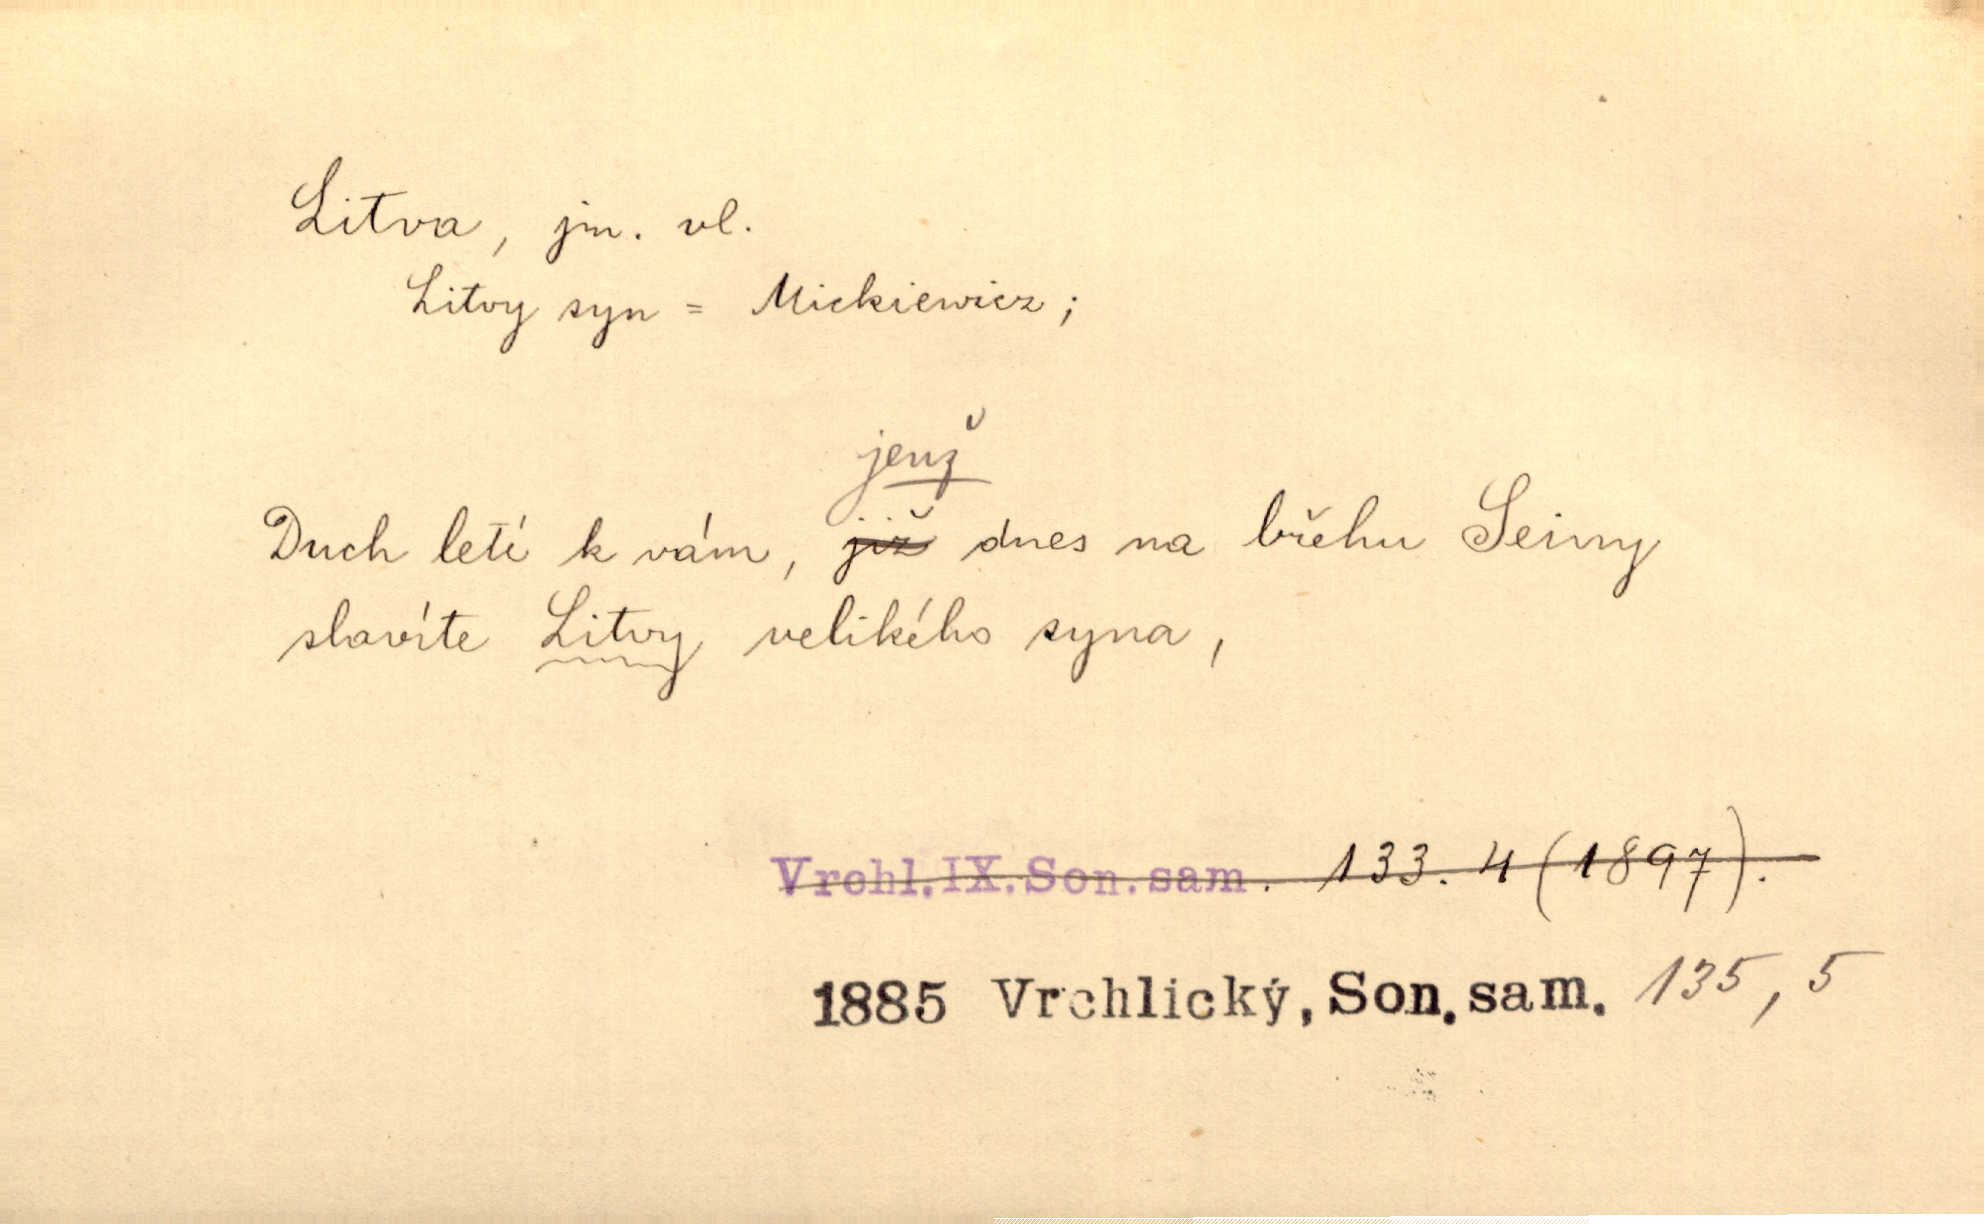 Litva, jm. vl.
Litvy syn = Mickiewicz;
jenž
Duch letí k vám, již dnes na břehu Seiny
slavíte Litvy velikého syna,
Vrchl.IX.Son.sam. 133. 4 (1897).
1885 Vrchlický, Son. sam. 135, 5